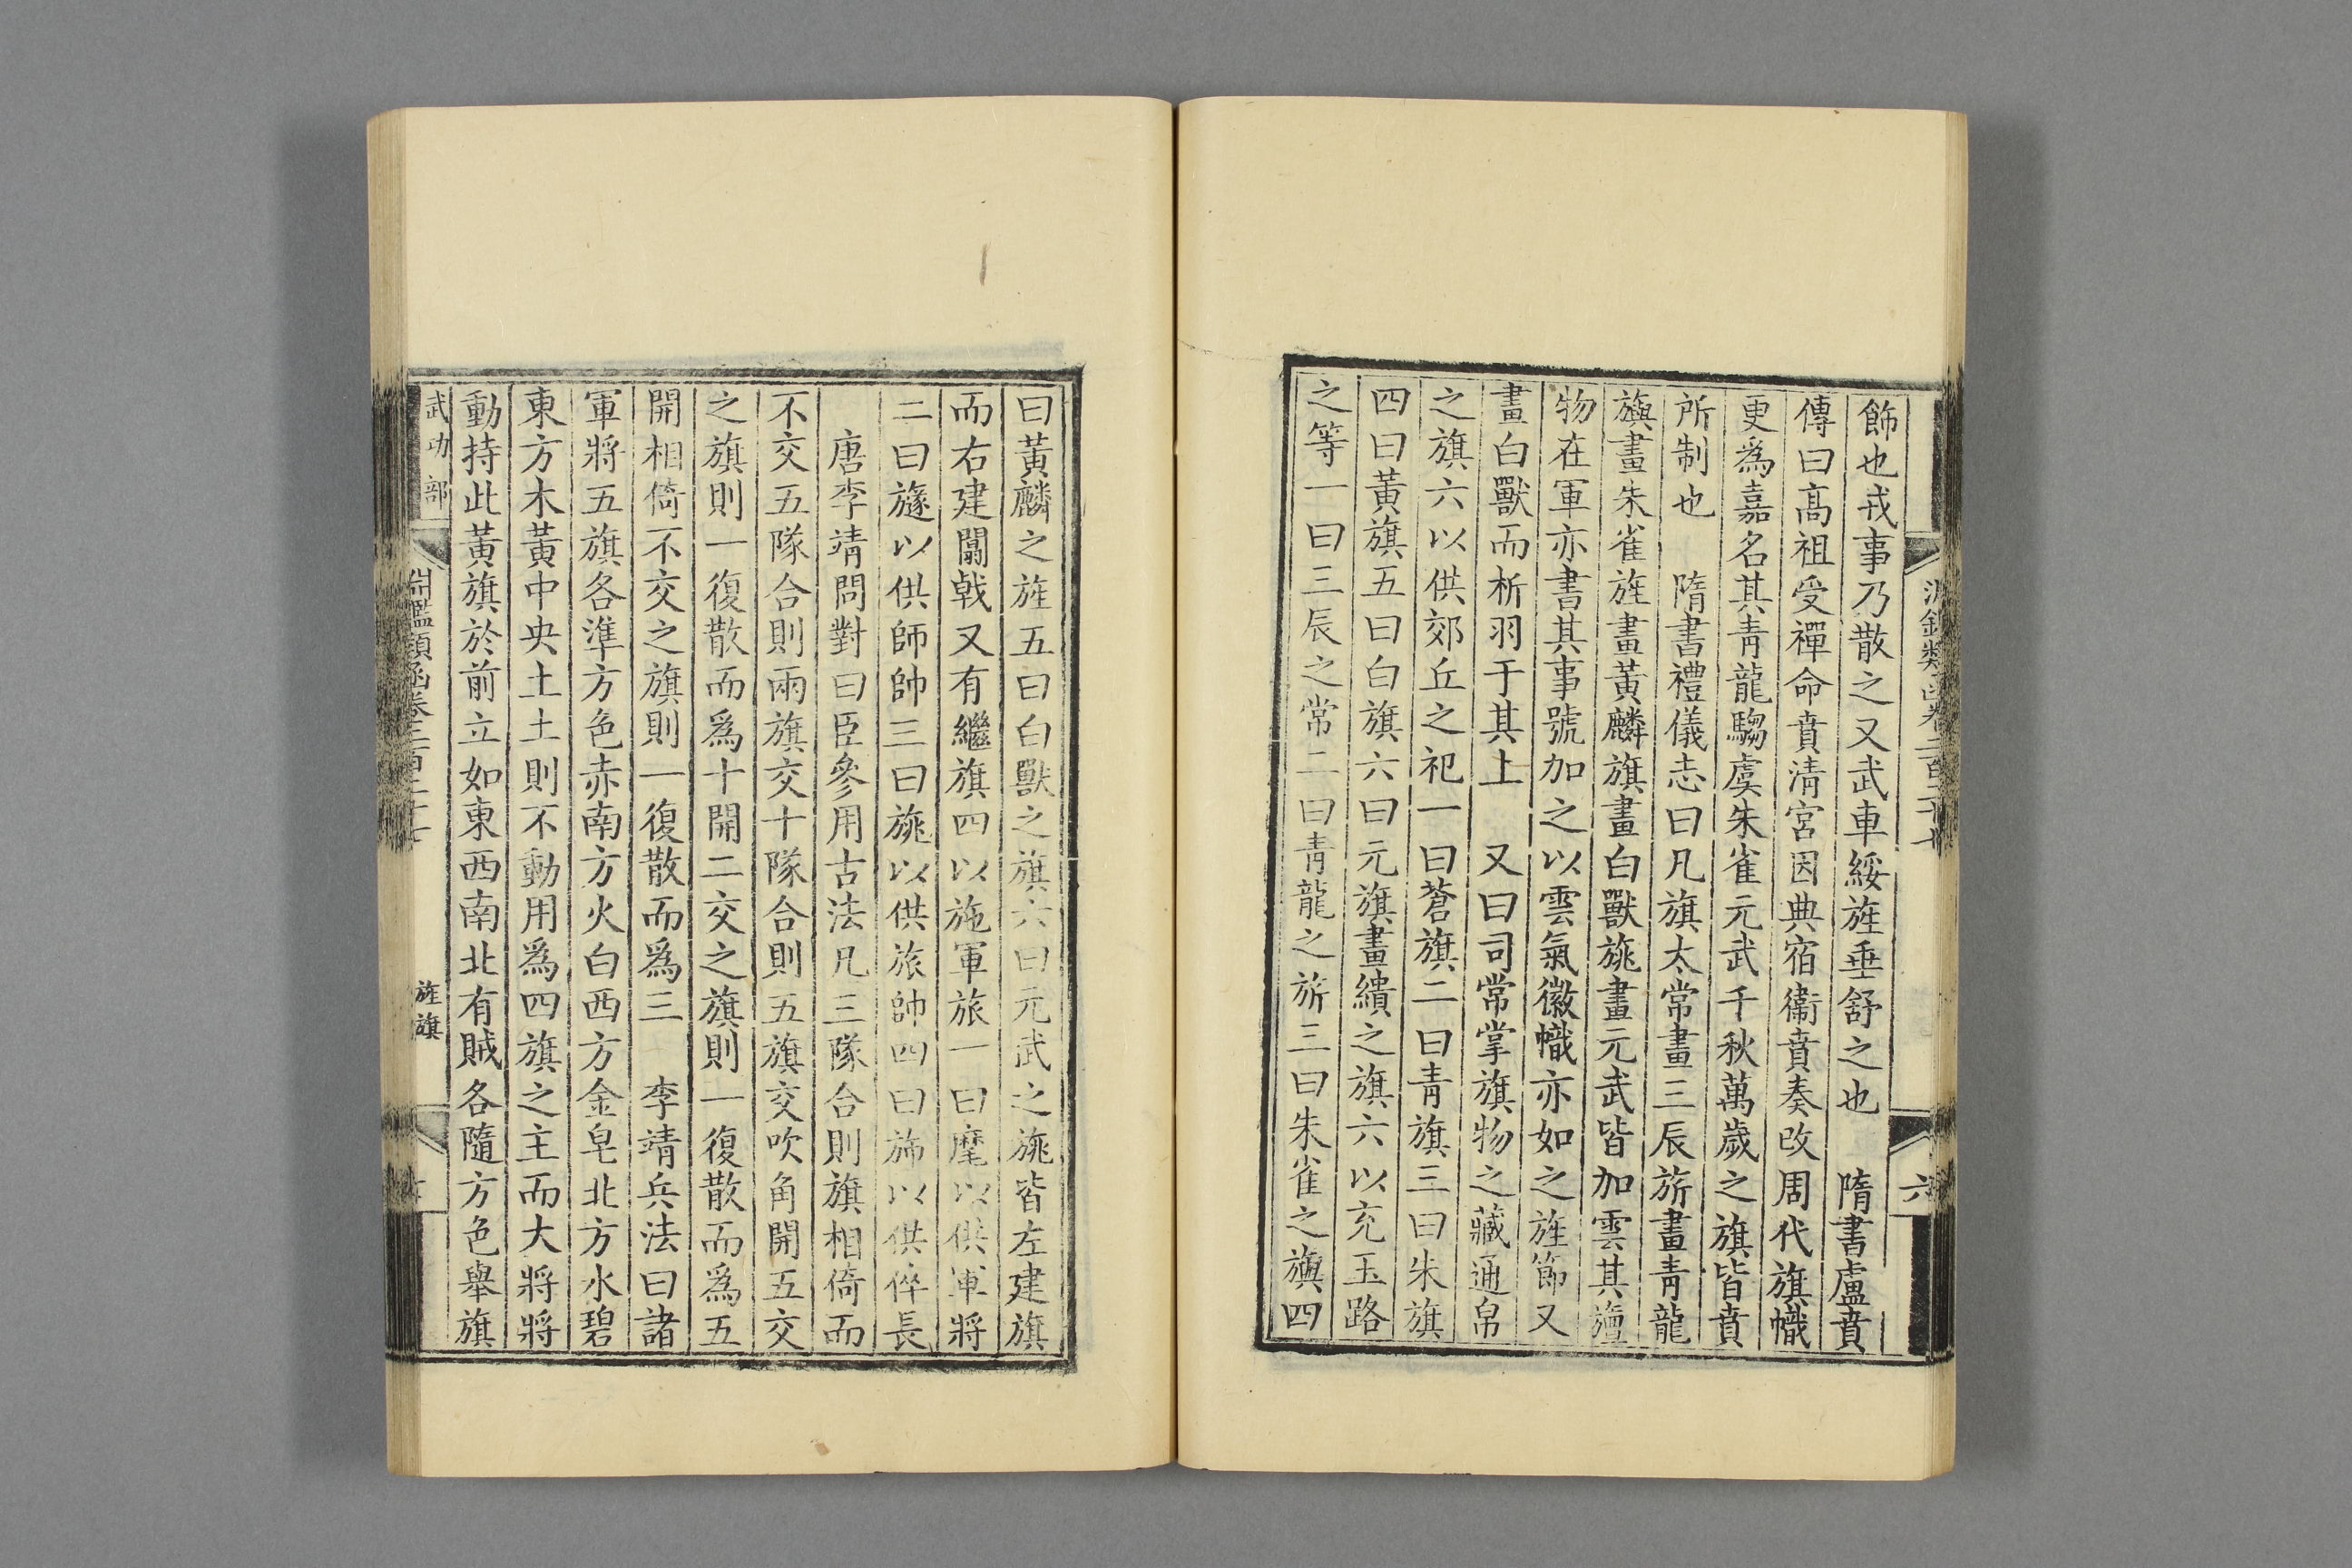 飾也戎事乃散之又武車綏旌垂舒之也　隋書盧賁
傳曰高祖受禪命賁淸宮因典宿衞賁奏改周代旗幟
更爲嘉名其靑龍騶虞朱雀元武千秋萬歲之旗皆賁
所制也　隋書禮儀志曰凡旗太常畫三辰旂畫靑龍
旟畫朱雀旌畫黃麟旗畫白獸旐畫元武皆加雲其旜
物在軍亦書其事號加之以雲氣徽幟亦如之旌節又
畫白獸而析羽于其上　又曰司常掌旗物之藏通帛
之旗六以供郊丘之祀一曰蒼旗二曰靑旗三曰朱旗
四曰黃旗五曰白旗六曰元旗畫繢之旗六以充玉路
之等一曰三辰之常二曰靑龍之旂三曰朱雀之旟四
六
曰黃麟之旌五曰白獸之旗六曰元武之旐皆左建旗
而右建闟戟又有繼旗四以施軍旅一曰麾以供軍將
二曰旞以供師帥三曰旐以供旅帥四曰斾以供倅長
唐李靖問對曰臣參用古法凡三隊合則旗相倚而
不交五隊合則兩旗交十隊合則五旗交吹角開五交
之旗則一復散而爲十開二交之旗則一復散而爲五
開相倚不交之旗則一復散而爲三　李靖兵法曰諸
軍將五旗各準方色赤南方火白西方金皂北方水碧
東方木黃中央土土則不動用爲四旗之主而大將將
動持此黃旗於前立如東西南北有賊各隨方色舉旗
武功部　旌旗